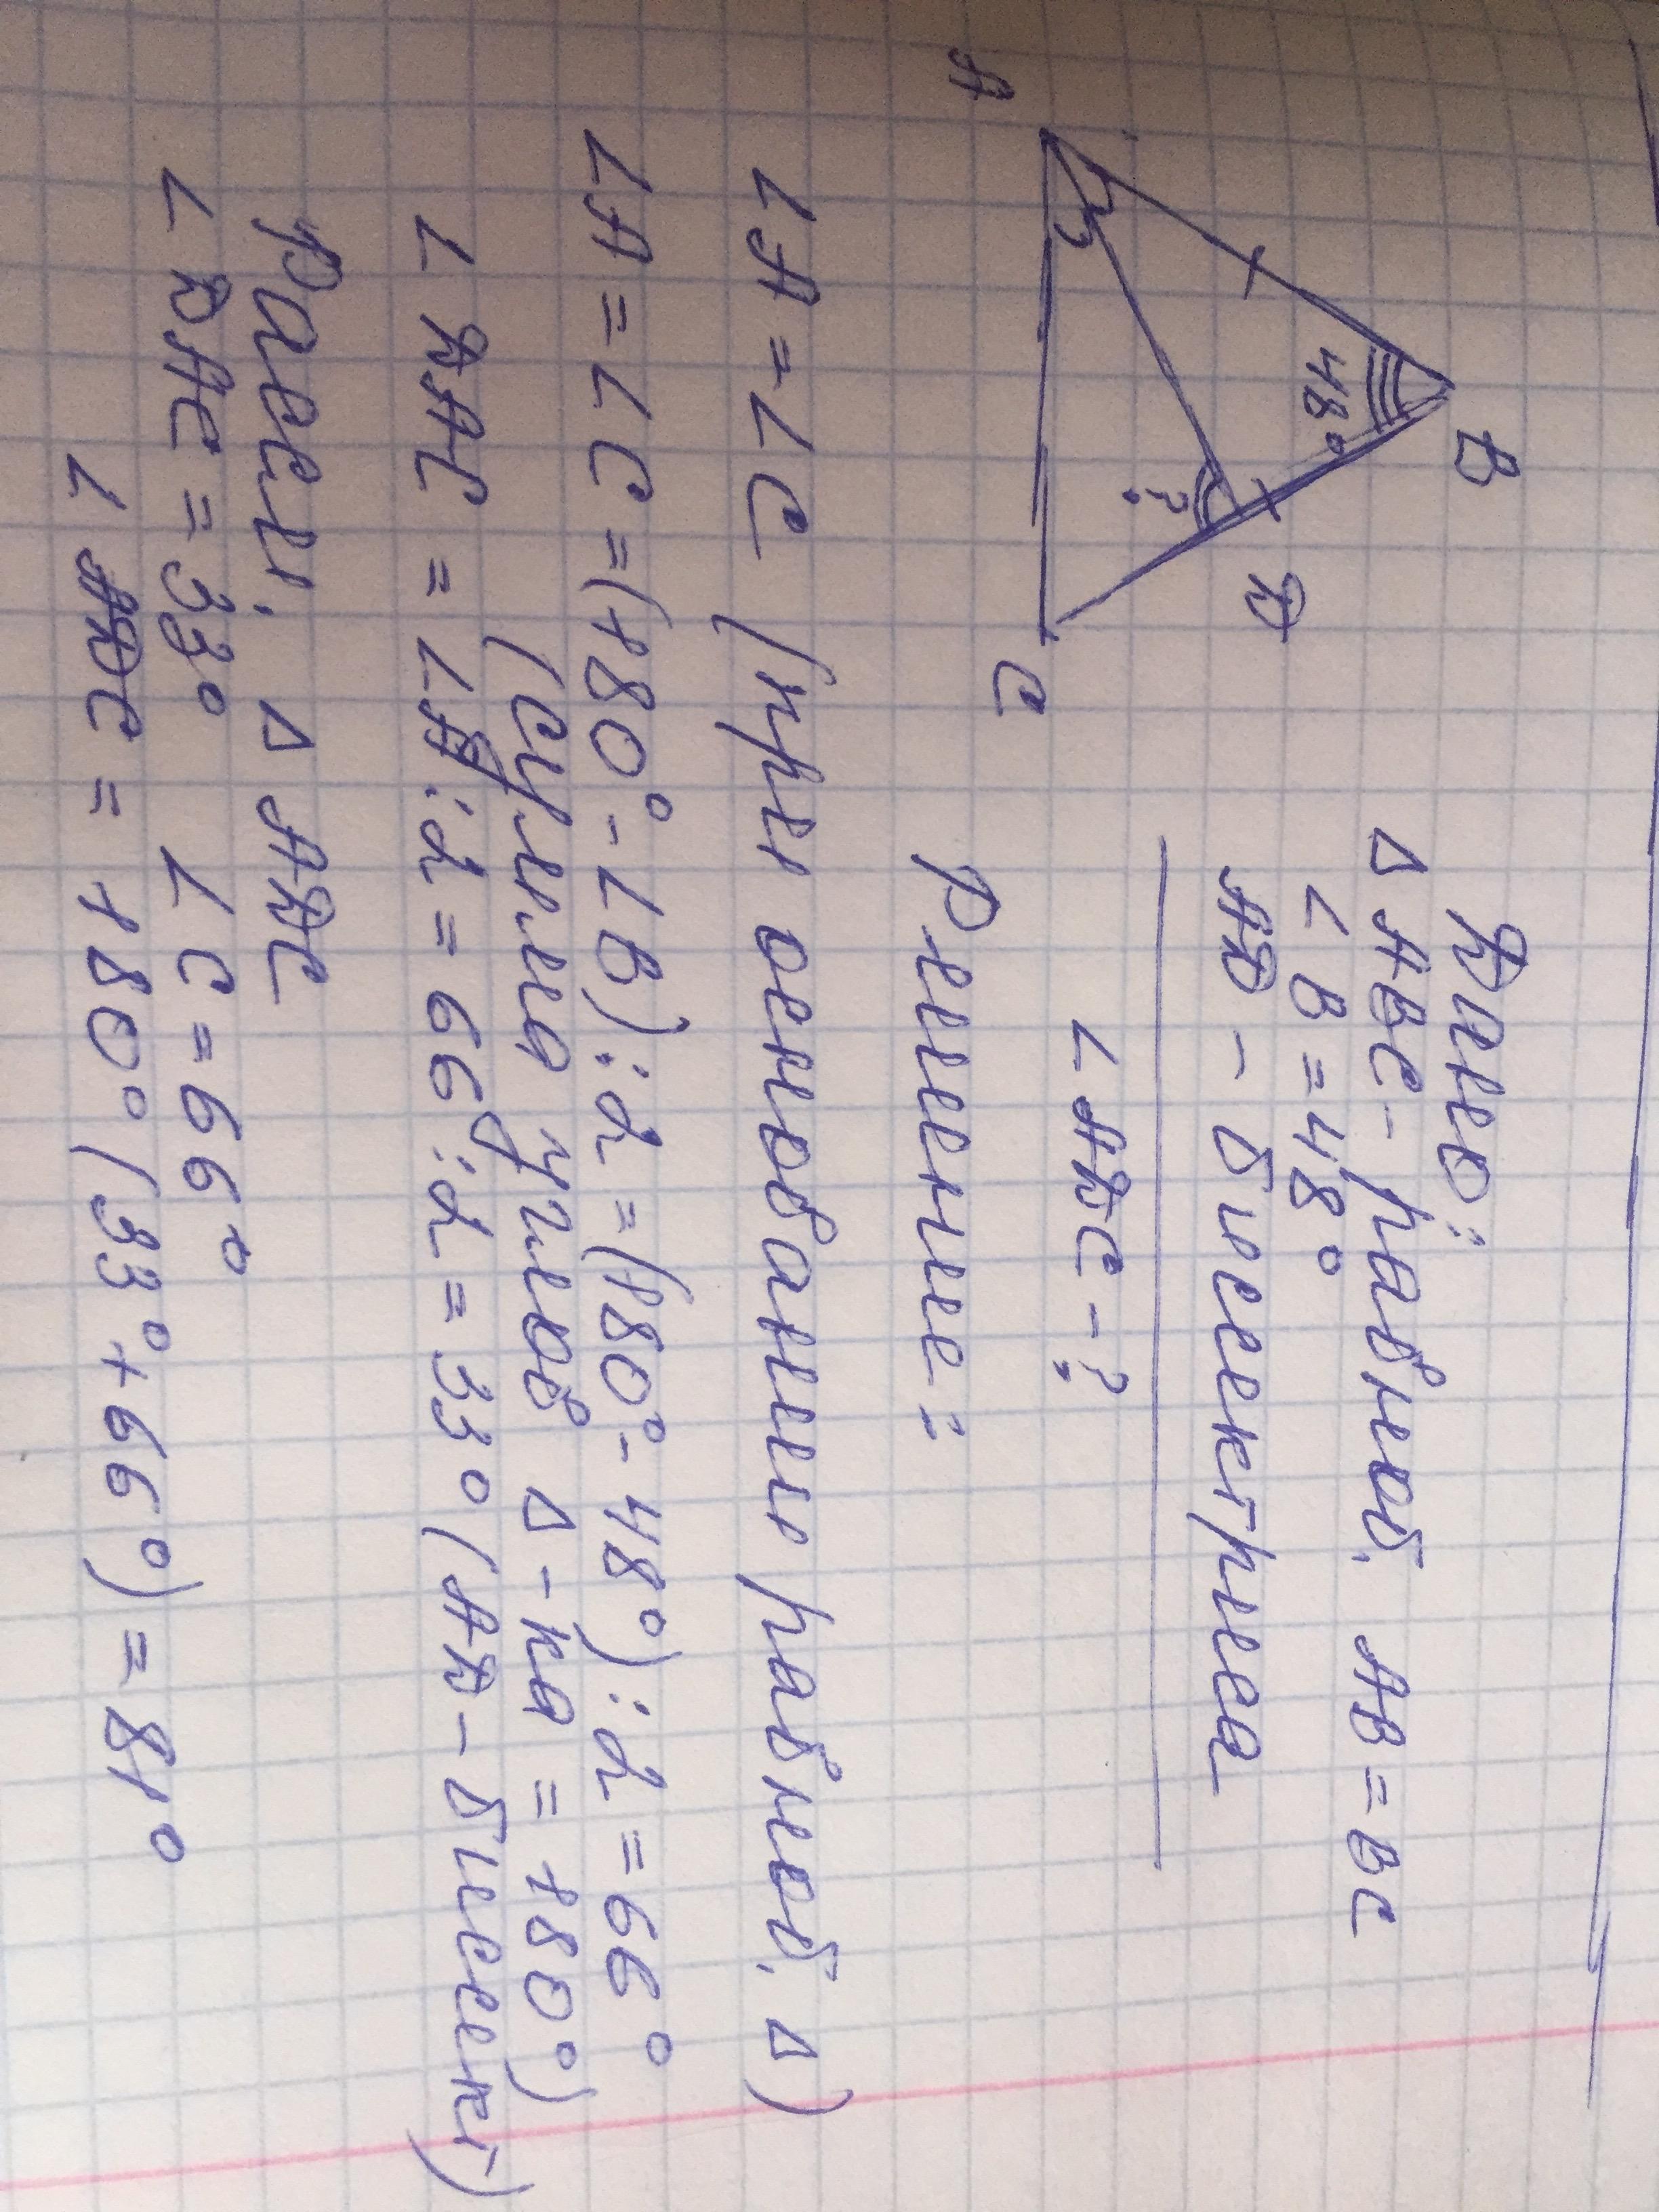 B
48°
D
?
A
C
Дано:
Δ ABC - равноб. AB = BC
∠ B = 48°
AD - биссектриса
∠ ADC - ?
Решение:
∠A = ∠C (при основании равноб. Δ)
∠A = ∠C = (180° - ∠B) : 2 = (180° - 48°) : 2 = 66°
(сумма углов Δ-ка = 180°)
∠ DAC = ∠A : 2 = 66° : 2 = 33° (AD - биссект)
Рассм. Δ ADC
∠ DAC = 33° ∠ C = 66°
∠ ADC = 180° (33° + 66°) = 81°